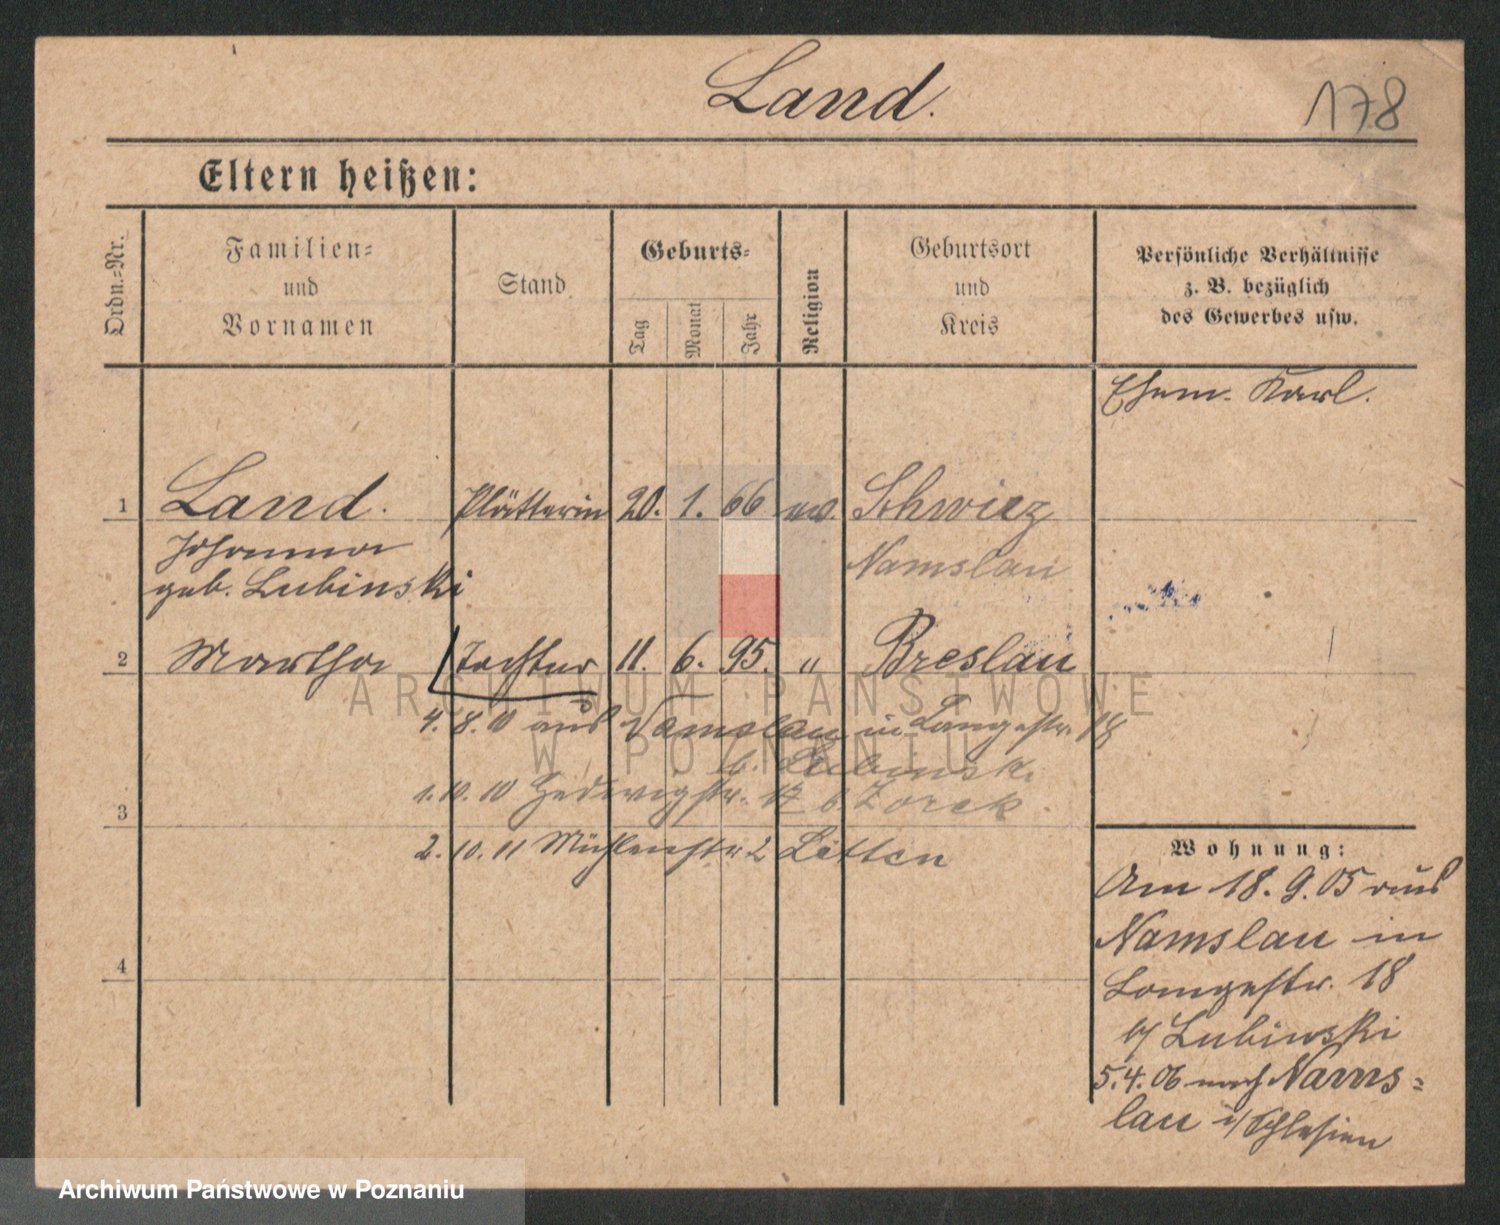 Land.
178
Eltern heißen:
Ordn.-Nr.
Familien-
und
Vornamen
Stand
Geburts-
Tag
Monat
Jahr
Religion
Geburtsort
und
Kreis
Persönliche Verhältnisse
z. B. bezüglich
des Gewerbes usw.
Ehem. Karl.
1 Land. Plätterin 20. 1. 66 ev. Schwirz
Johanna Namslau
geb. Lubinski
2 Martha Tochter 11. 6. 95. " Breslau
4. 8. 10 aus Namslau in Langestr. 18
b. Lubinski
1. 10. 10 Hedwigstr. 17 b Zorek
3
2. 10. 11 Mühlenstr 2 Litten
4
Wohnung:
Am 18. 9. 05 aus
Namslau in
Langestr. 18
b/ Lubinski
5. 4. 06 nach Nams-
lau i/ Schlesien
ARCHIWUM PAŃSTWOWE
W POZNANIU
Archiwum Państwowe w Poznaniu